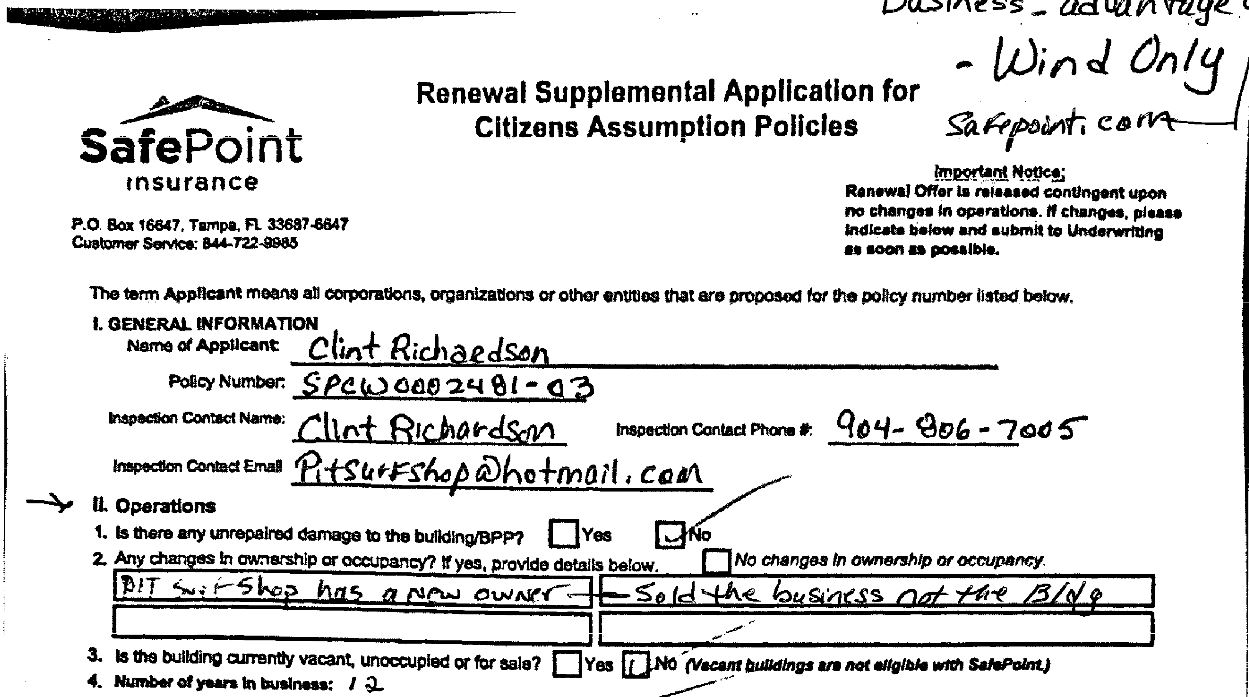 Business - advantage
- Wind Only
Safepoint.com
Renewal Supplemental Application for
Citizens Assumption Policies
SafePoint
Insurance
P.O. Box 16647, Tampa, FL 33687-6647
Customer Service: 844-722-9985
Important Notice:
Renewal Offer is released contingent upon
no changes in operations. If changes, please
indicate below and submit to Underwriting
as soon as possible.
The term Applicant means all corporations, organizations or other entities that are proposed for the policy number listed below.
I. GENERAL INFORMATION
Name of Applicant: Clint Richaedson
Policy Number: SPCW0002481-03
Inspection Contact Name: Clint Richardson Inspection Contact Phone #: 904-806-7005
Inspection Contact Email PitSurfshop@hotmail.com
II. Operations
1. Is there any unrepaired damage to the building/BPP? Yes No
2. Any changes in ownership or occupancy? If yes, provide details below. No changes in ownership or occupancy.
PIT Surf Shop has a new owner — Sold the business not the Bldg
3. Is the building currently vacant, unoccupied or for sale? Yes No (Vacant buildings are not eligible with SafePoint.)
4. Number of years in business: 12